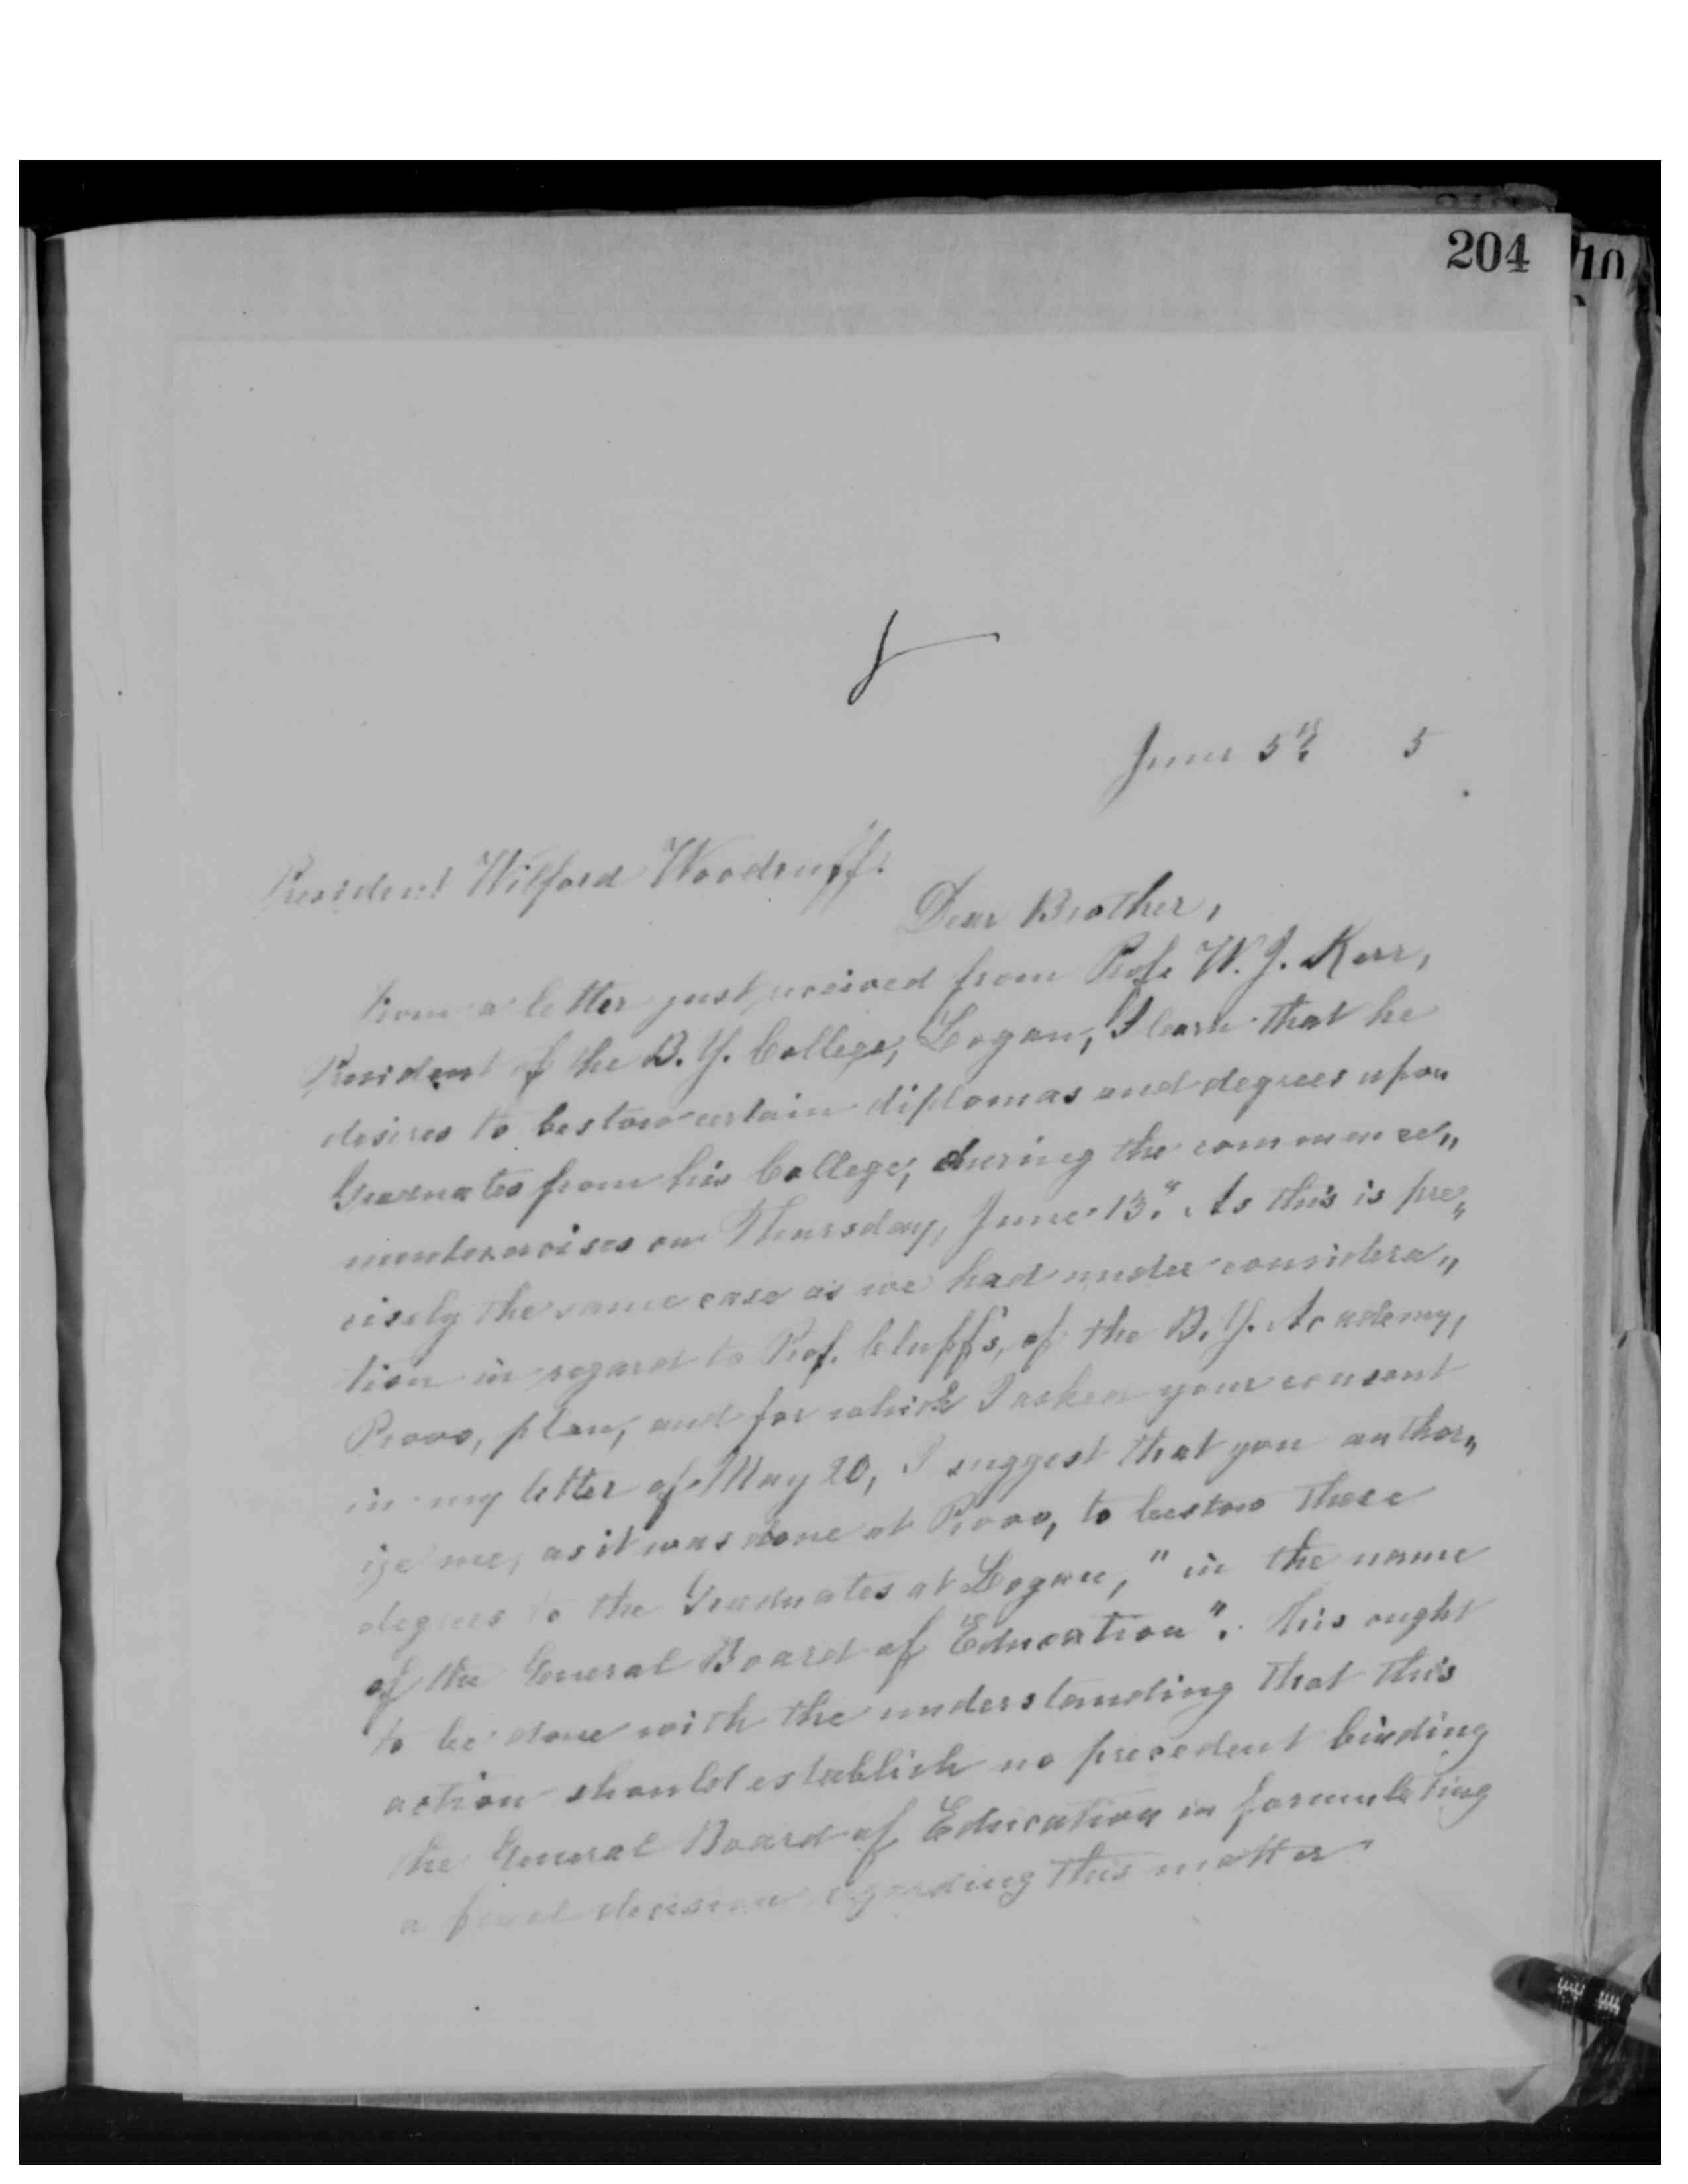 204
10
June 5th 5
President Wilford Woodruff.
Dear Brother,
From a letter just received from Prof. W. J. Kerr,
President of the B. Y. College, Logan, I learn that he
desires to bestow certain diplomas and degrees upon
Graduates from his College, during the commence„
ment exercises on Thursday, June 13." As this is pre„
cisely the same case as we had under considera„
tion in regard to Prof. Cluff's, of the B. Y. Academy,
Provo, plan, and for which I asked your consent
in my letter of May 20, I suggest that you author„
ize me, as it was done at Provo, to bestow these
degrees to the Graduates at Logan, "in the name
of the General Board of Education". This ought
to be done with the understanding that this
action should establish no precedent binding
the General Board of Education in formulating
a final decision regarding this matter